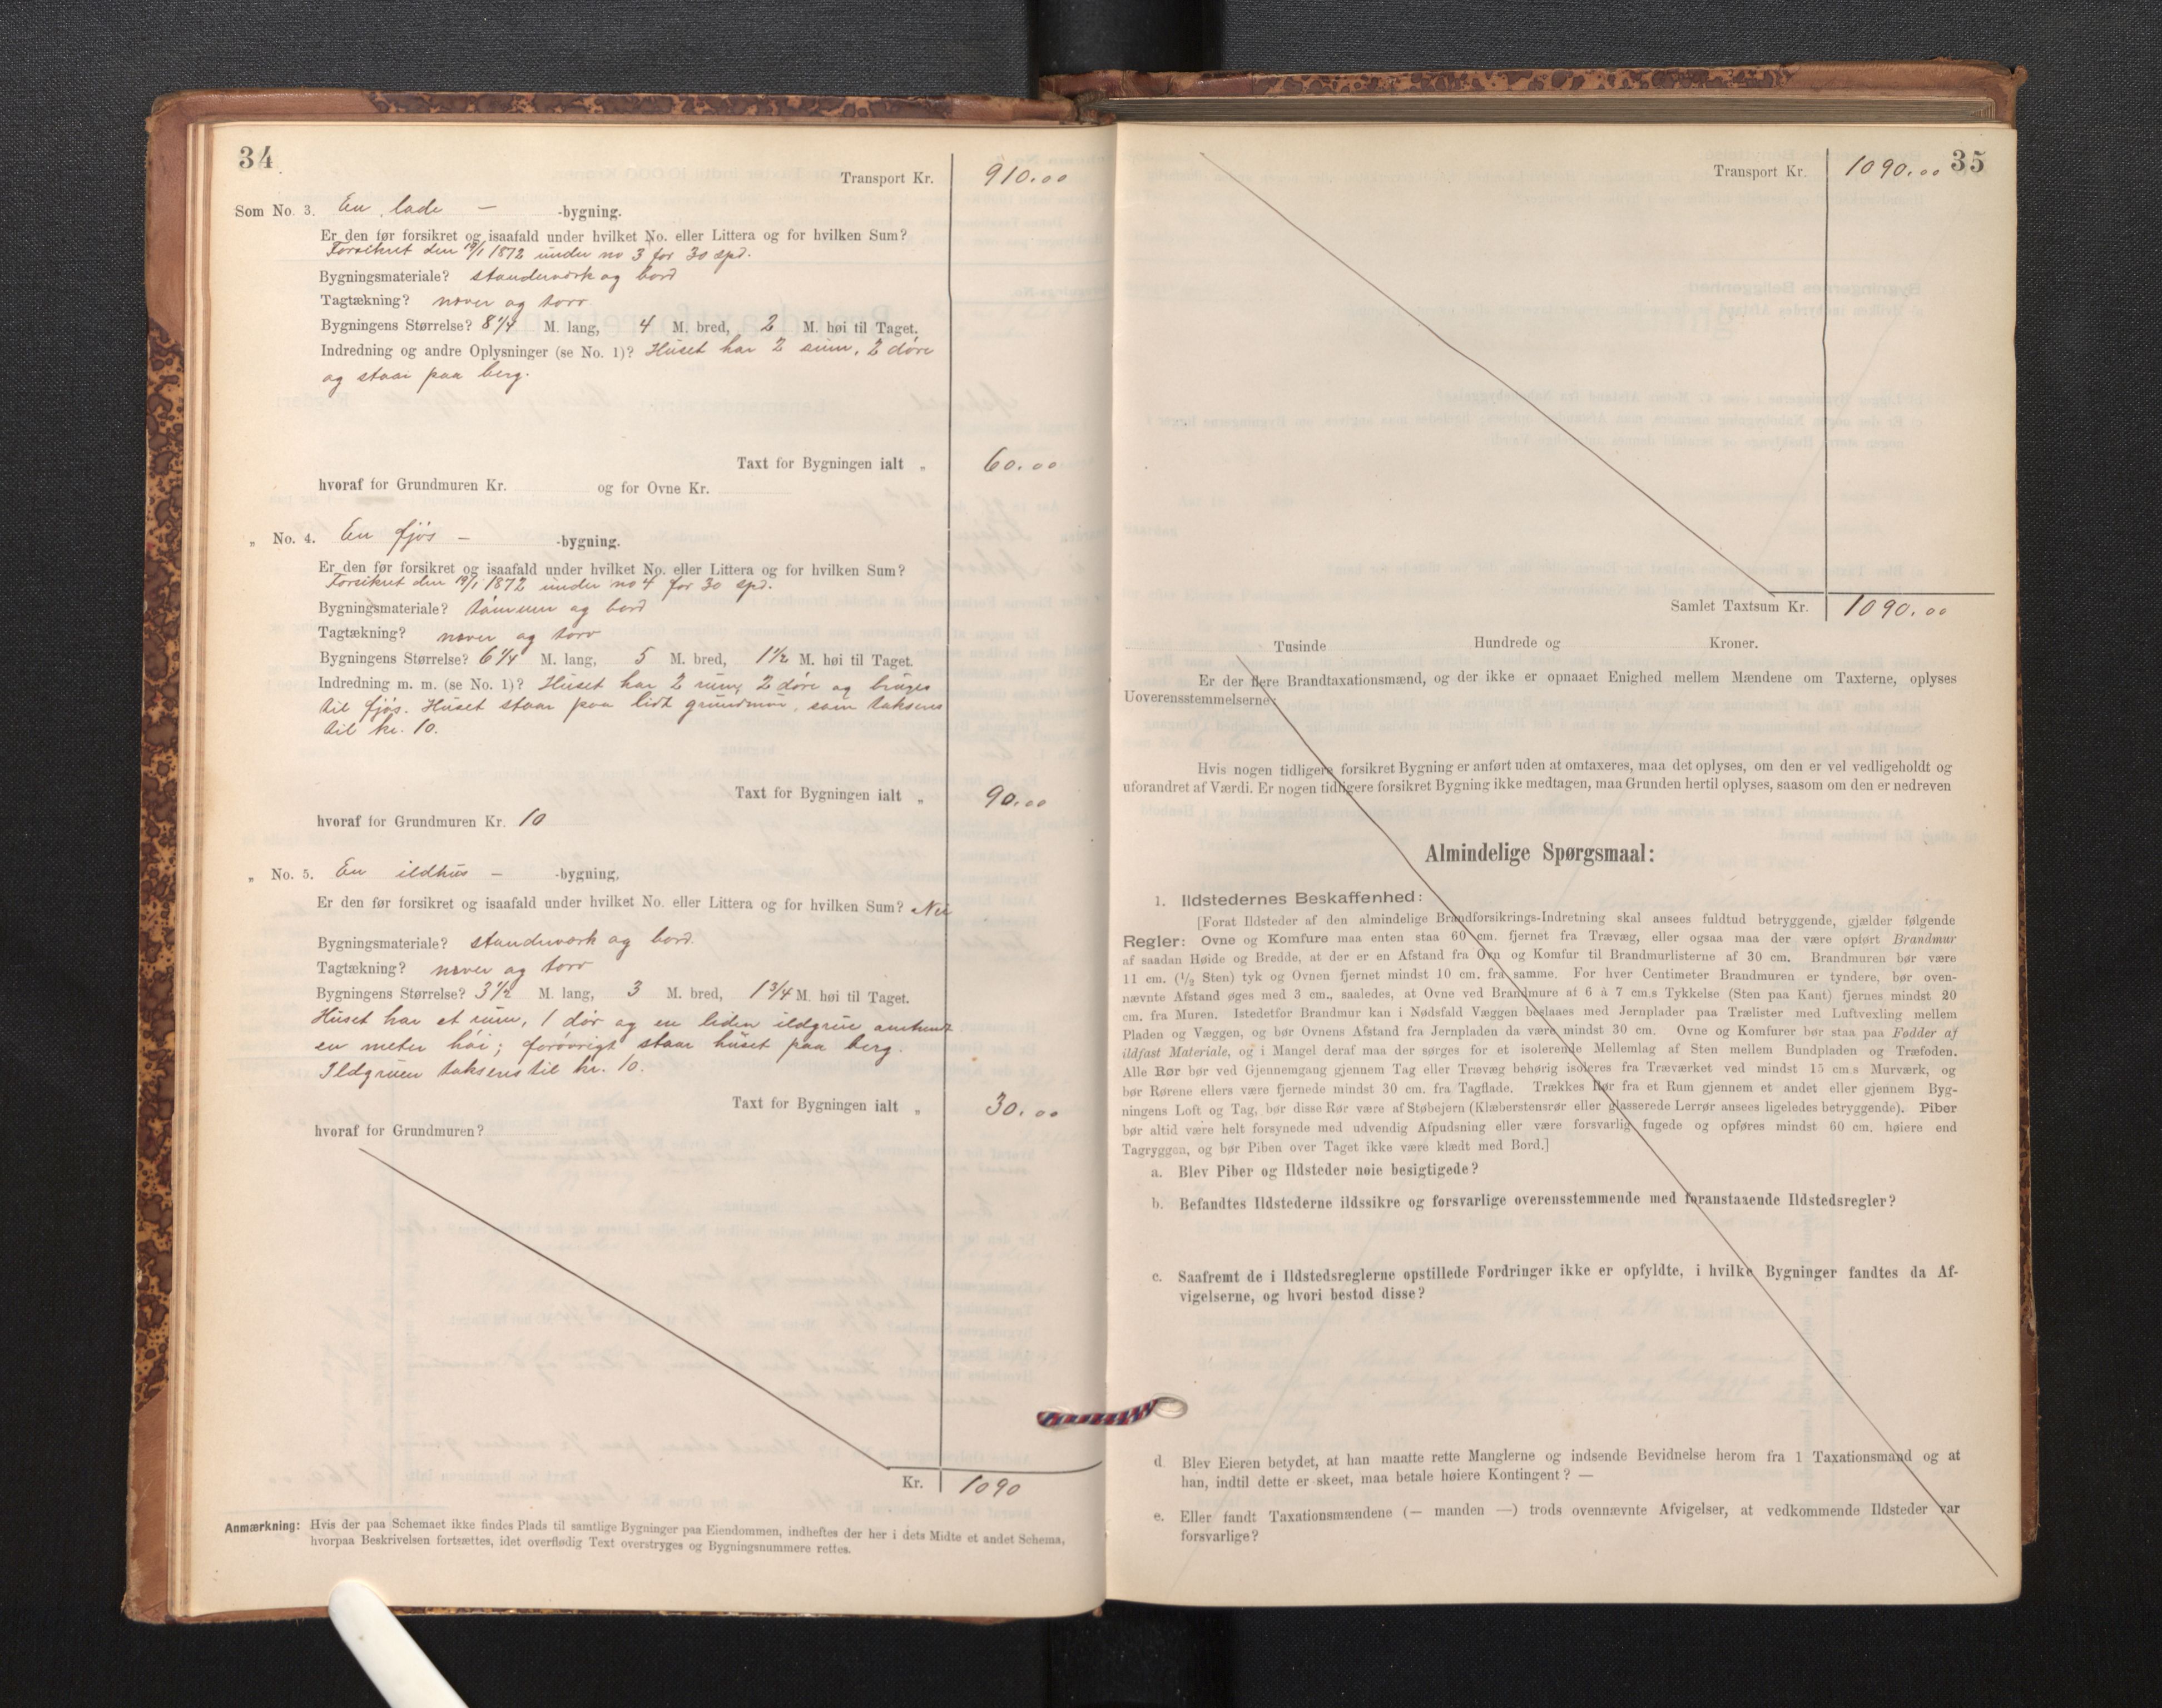 34
Transport Kr. 910.00
Som No. 3. En lade — -bygning.
Er den før forsikret og isaafald under hvilket No. eller Littera og for hvilken Sum?
Forsikret den 19/1 1872 under no 3 for 30 spd.
Bygningsmateriale? standerværk og bord
Tagtækning? næver og torv
Bygningens Størrelse? 8 1/4 M. lang, 4 M. bred, 2 M. høi til Taget.
Indredning og andre Oplysninger (se No. 1)? Huset har 2 rum, 2 døre
og staar paa berg.
Taxt for Bygningen ialt „ 60.00
hvoraf for Grundmuren Kr. og for Ovne Kr.
„ No. 4. En fjøs — -bygning.
Er den før forsikret og isaafald under hvilket No. eller Littera og for hvilken Sum?
Forsikret den 19/1 1872 under no 4 for 30 spd.
Bygningsmateriale? tømmer og bord
Tagtækning? næver og torv
Bygningens Størrelse? 6 1/4 M. lang, 5 M. bred, 1 1/2 M. høi til Taget.
Indredning m. m. (se No. 1)? Huset har 2 rum, 2 døre og bruges
til fjøs. Huset staar paa lidt grundmur, som takseres
til kr. 10.
Taxt for Bygningen ialt „ 90.00
hvoraf for Grundmuren Kr. 10
„ No. 5. En ildhus — -bygning,
Er den før forsikret og isaafald under hvilket No. eller Littera og for hvilken Sum? Nei
Bygningsmateriale? standerværk og bord.
Tagtækning? næver og torv
Bygningens Størrelse? 3 1/2 M. lang, 3 M. bred, 1 3/4 M. høi til Taget.
Huset har et rum, 1 dør og en liden ildgrue omtrent
en meter høi; forøvrigt staar huset paa berg.
Ildgruen takseres til kr. 10.
Taxt for Bygningen ialt „ 30.00
hvoraf for Grundmuren?
Kr. 1090
Anmærkning: Hvis der paa Schemaet ikke findes Plads til samtlige Bygninger paa Eiendommen, indheftes der her i dets Midte et andet Schema,
hvorpaa Beskrivelsen fortsættes, idet overflødig Text overstryges og Bygningsnummere rettes.
35
Transport Kr. 1090.00
Samlet Taxtsum Kr. 1090.00
Tusinde Hundrede og Kroner.
Er der flere Brandtaxationsmænd, og der ikke er opnaaet Enighed mellem Mændene om Taxterne, oplyses
Uoverensstemmelserne:
Hvis nogen tidligere forsikret Bygning er anført uden at omtaxeres, maa det oplyses, om den er vel vedligeholdt og
uforandret af Værdi. Er nogen tidligere forsikret Bygning ikke medtagen, maa Grunden hertil oplyses, saasom om den er nedreven
Almindelige Spørgsmaal:
1. Ildstedernes Beskaffenhed:
[Forat Ildsteder af den almindelige Brandforsikrings-Indretning skal ansees fuldtud betryggende, gjælder følgende
Regler: Ovne og Komfure maa enten staa 60 cm. fjernet fra Trævæg, eller ogsaa maa der være opført Brandmur
af saadan Høide og Bredde, at der er en Afstand fra Ovn og Komfur til Brandmurlisterne af 30 cm. Brandmuren bør være
11 cm. (1/2 Sten) tyk og Ovnen fjernet mindst 10 cm. fra samme. For hver Centimeter Brandmuren er tyndere, bør oven-
nævnte Afstand øges med 3 cm., saaledes, at Ovne ved Brandmure af 6 à 7 cm.s Tykkelse (Sten paa Kant) fjernes mindst 20
cm. fra Muren. Istedetfor Brandmur kan i Nødsfald Væggen beslaaes med Jernplader paa Trælister med Luftvexling mellem
Pladen og Væggen, og bør Ovnens Afstand fra Jernpladen da være mindst 30 cm. Ovne og Komfurer bør staa paa Fødder af
ildfast Materiale, og i Mangel deraf maa der sørges for et isolerende Mellemlag af Sten mellem Bundpladen og Træfoden.
Alle Rør bør ved Gjennemgang gjennem Tag eller Trævæg behørig isoleres fra Træværket ved mindst 15 cm.s Murværk, og
bør Rørene ellers være fjernede mindst 30 cm. fra Tagflade. Trækkes Rør fra et Rum gjennem et andet eller gjennem Byg-
ningens Loft og Tag, bør disse Rør være af Støbejern (Klæberstensrør eller glasserede Lerrør ansees ligeledes betryggende). Piber
bør altid være helt forsynede med udvendig Afpudsning eller være forsvarlig fugede og opføres mindst 60 cm. høiere end
Tagryggen, og bør Piben over Taget ikke være klædt med Bord.]
a. Blev Piber og Ildsteder nøie besigtigede?
b. Befandtes Ildstederne ildssikre og forsvarlige overensstemmende med foranstaaende Ildstedsregler?
c. Saafremt de i Ildstedsreglerne opstillede Fordringer ikke er opfyldte, i hvilke Bygninger fandtes da Af-
vigelserne, og hvori bestod disse?
d. Blev Eieren betydet, at han maatte rette Manglerne og indsende Bevidnelse herom fra 1 Taxationsmand og at
han, indtil dette er skeet, maa betale høiere Kontingent? —
e. Eller fandt Taxationsmændene (— manden —) trods ovennævnte Afvigelser, at vedkommende Ildsteder var
forsvarlige?